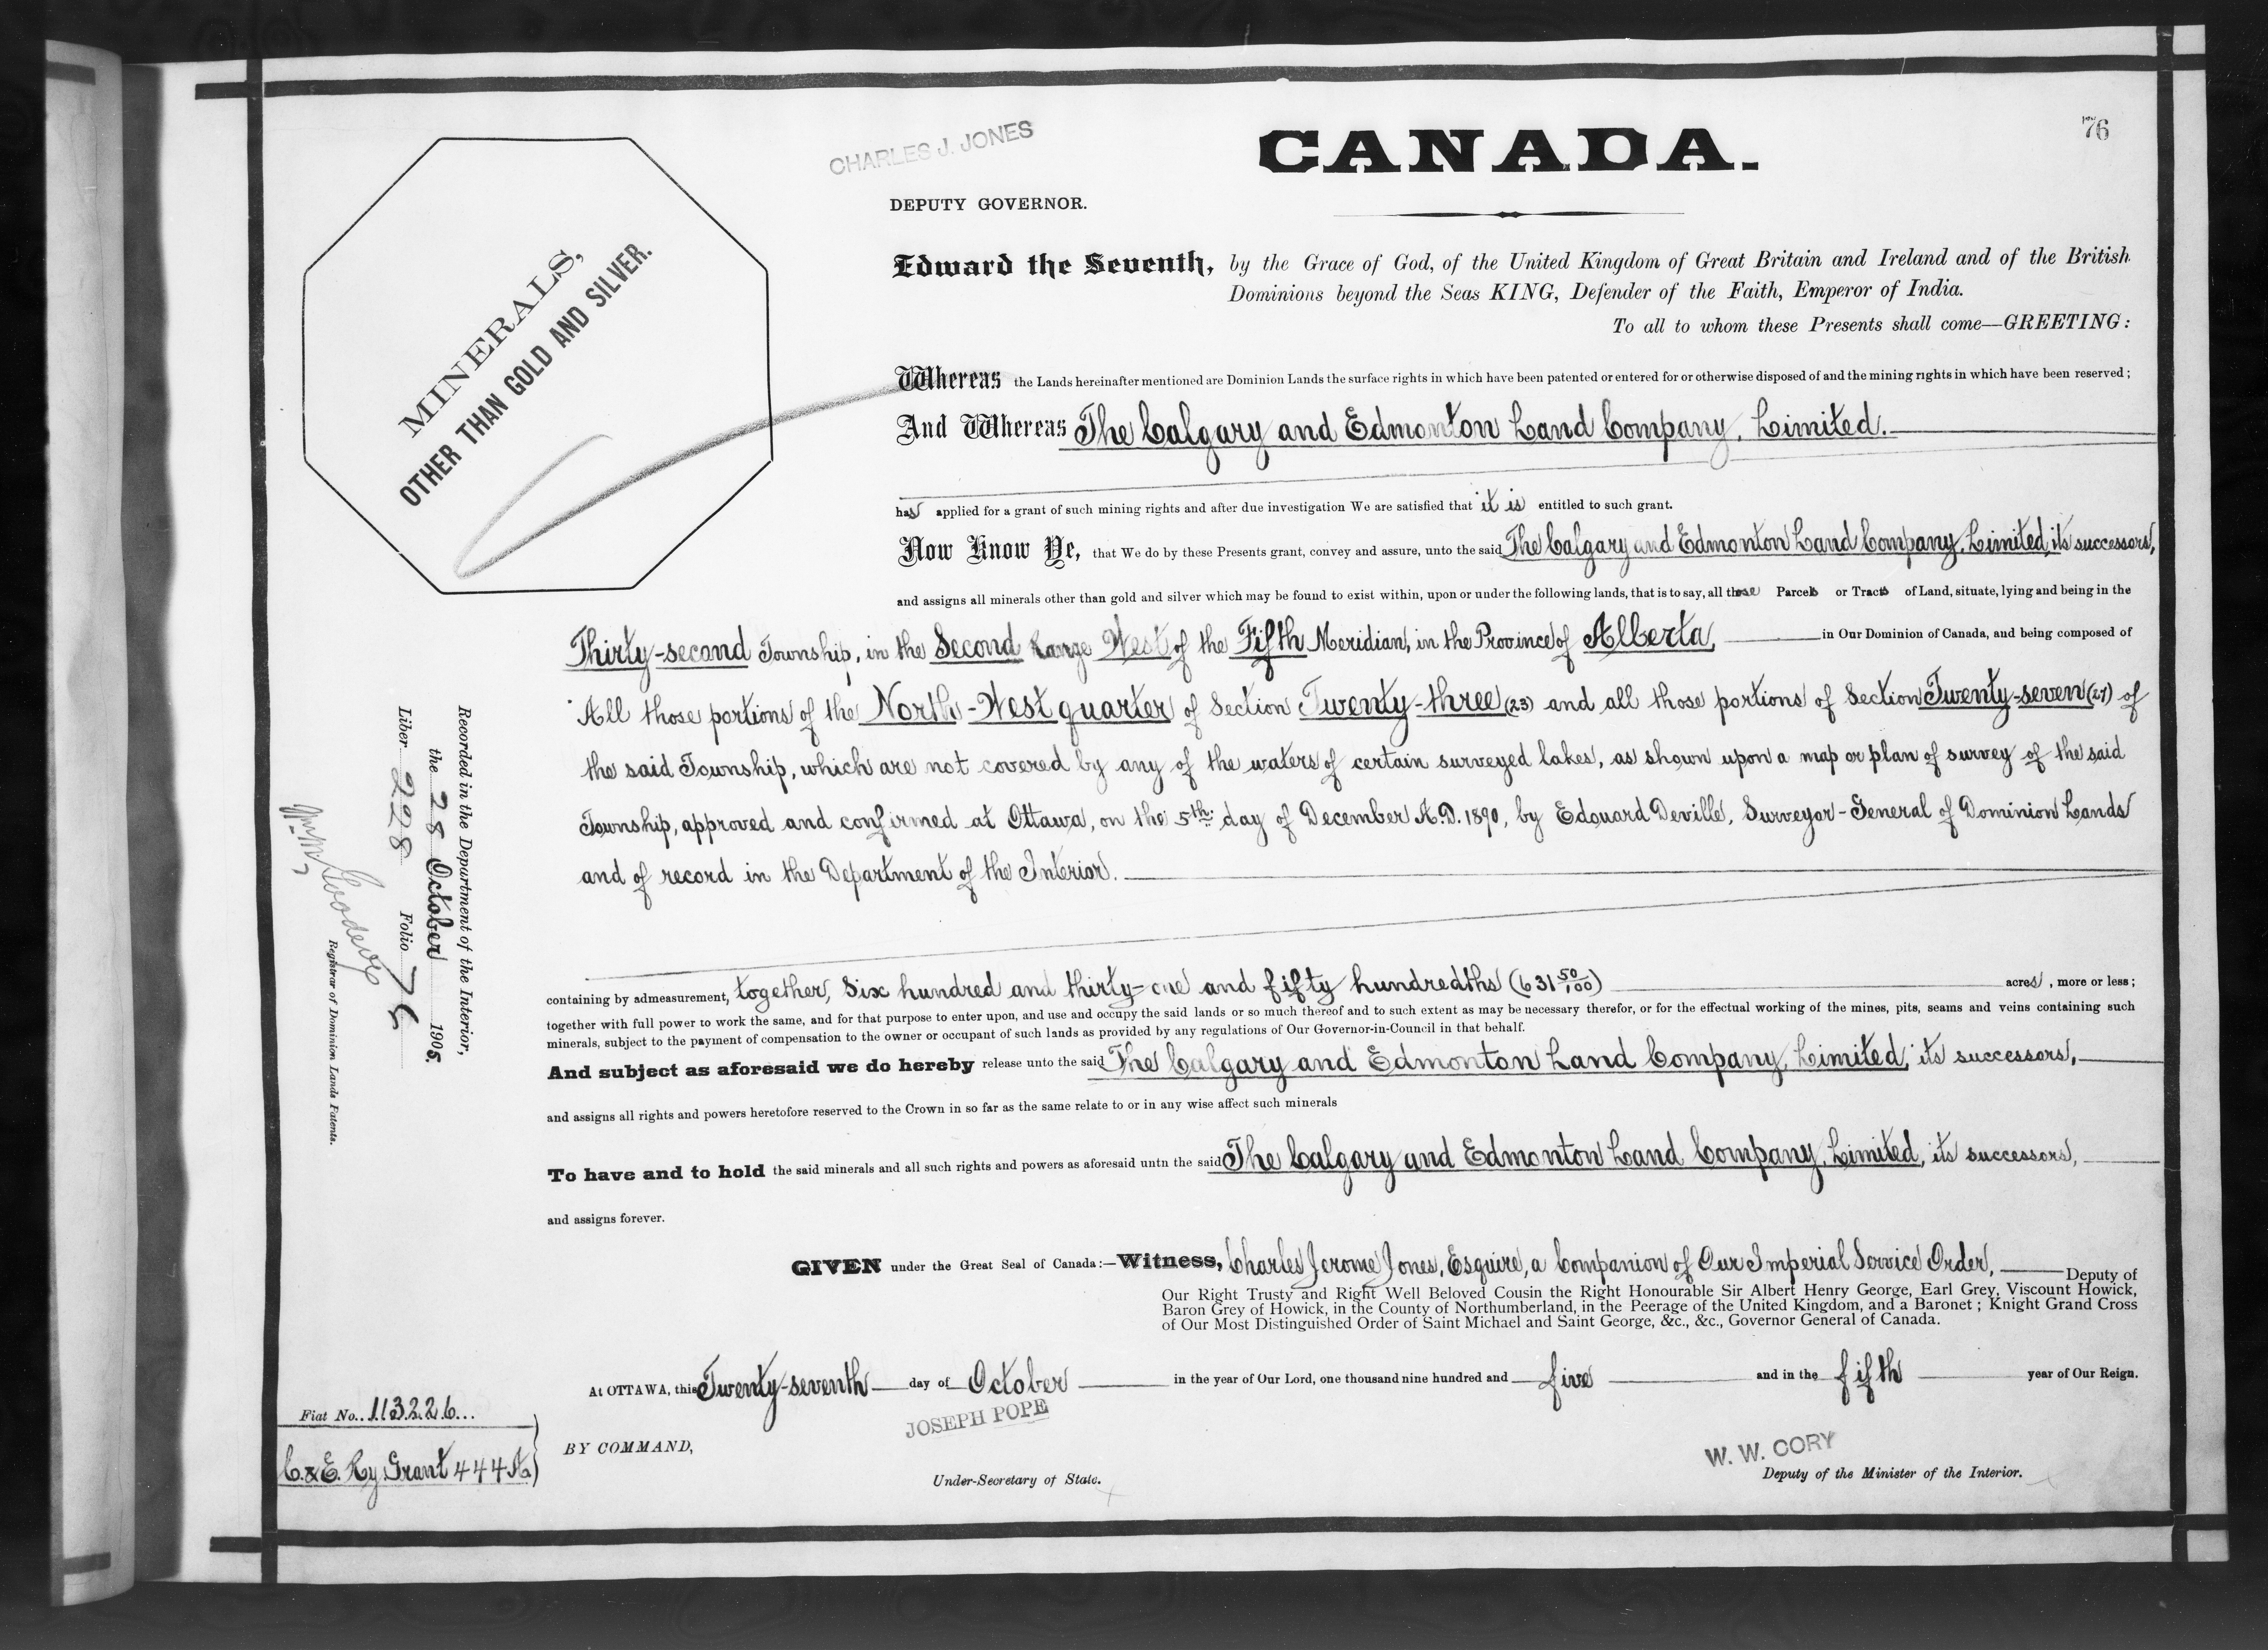 76
CHARLES J. JONES
CANADA.
DEPUTY GOVERNOR.
MINERALS,
OTHER THAN GOLD AND SILVER.
Edward the Seventh, by the Grace of God, of the United Kingdom of Great Britain and Ireland and of the British
Dominions beyond the Seas KING, Defender of the Faith, Emperor of India.
To all to whom these Presents shall come—GREETING:
Whereas the Lands hereinafter mentioned are Dominion Lands the surface rights in which have been patented or entered for or otherwise disposed of and the mining rights in which have been reserved;
And Whereas The Calgary and Edmonton Land Company, Limited.
has applied for a grant of such mining rights and after due investigation We are satisfied that it is entitled to such grant.
Now Know Ye, that We do by these Presents grant, convey and assure, unto the said The Calgary and Edmonton Land Company, Limited, its successors,
and assigns all minerals other than gold and silver which may be found to exist within, upon or under the following lands, that is to say, all those Parcels or Tracts of Land, situate, lying and being in the
Thirty-second Township, in the Second Range West of the Fifth Meridian, in the Province of Alberta, in Our Dominion of Canada, and being composed of
All those portions of the North-West quarter of Section Twenty-three (23) and all those portions of Section Twenty-seven (27) of
the said Township, which are not covered by any of the waters of certain surveyed lakes, as shown upon a map or plan of survey of the said
Township, approved and confirmed at Ottawa, on the 5th day of December A.D. 1890, by Edouard Deville, Surveyor-General of Dominion Lands
and of record in the Department of the Interior.
containing by admeasurement, together, Six hundred and thirty-one and fifty hundredths (631 50/100) acres, more or less;
together with full power to work the same, and for that purpose to enter upon, and use and occupy the said lands or so much thereof and to such extent as may be necessary therefor, or for the effectual working of the mines, pits, seams and veins containing such
minerals, subject to the payment of compensation to the owner or occupant of such lands as provided by any regulations of Our Governor-in-Council in that behalf.
And subject as aforesaid we do hereby release unto the said The Calgary and Edmonton Land Company, Limited, its successors,
and assigns all rights and powers heretofore reserved to the Crown in so far as the same relate to or in any wise affect such minerals
To have and to hold the said minerals and all such rights and powers as aforesaid untn the said The Calgary and Edmonton Land Company, Limited, its successors,
and assigns forever.
GIVEN under the Great Seal of Canada:—Witness, Charles Jerome Jones, Esquire, a Companion of Our Imperial Service Order, Deputy of
Our Right Trusty and Right Well Beloved Cousin the Right Honourable Sir Albert Henry George, Earl Grey, Viscount Howick,
Baron Grey of Howick, in the County of Northumberland, in the Peerage of the United Kingdom, and a Baronet; Knight Grand Cross
of Our Most Distinguished Order of Saint Michael and Saint George, &c., &c., Governor General of Canada.
At OTTAWA, this Twenty-seventh day of October in the year of Our Lord, one thousand nine hundred and five and in the fifth year of Our Reign.
JOSEPH POPE
BY COMMAND,
Under-Secretary of State.
W. W. CORY
Deputy of the Minister of the Interior.
Recorded in the Department of the Interior,
the 28 October 1905.
Liber 228 Folio 76
Registrar of Dominion Lands Patents.
Fiat No. 113226
C. & E. Ry Grant 444 A.